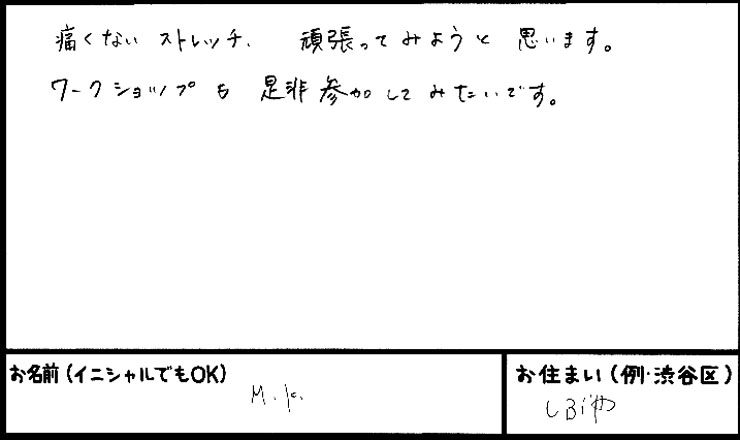 痛くない ストレッチ、 頑張ってみようと 思います。
ワークショップも 是非 参加してみたいです。
お名前(イニシャルでもOK)
M.K.
お住まい(例・渋谷区)